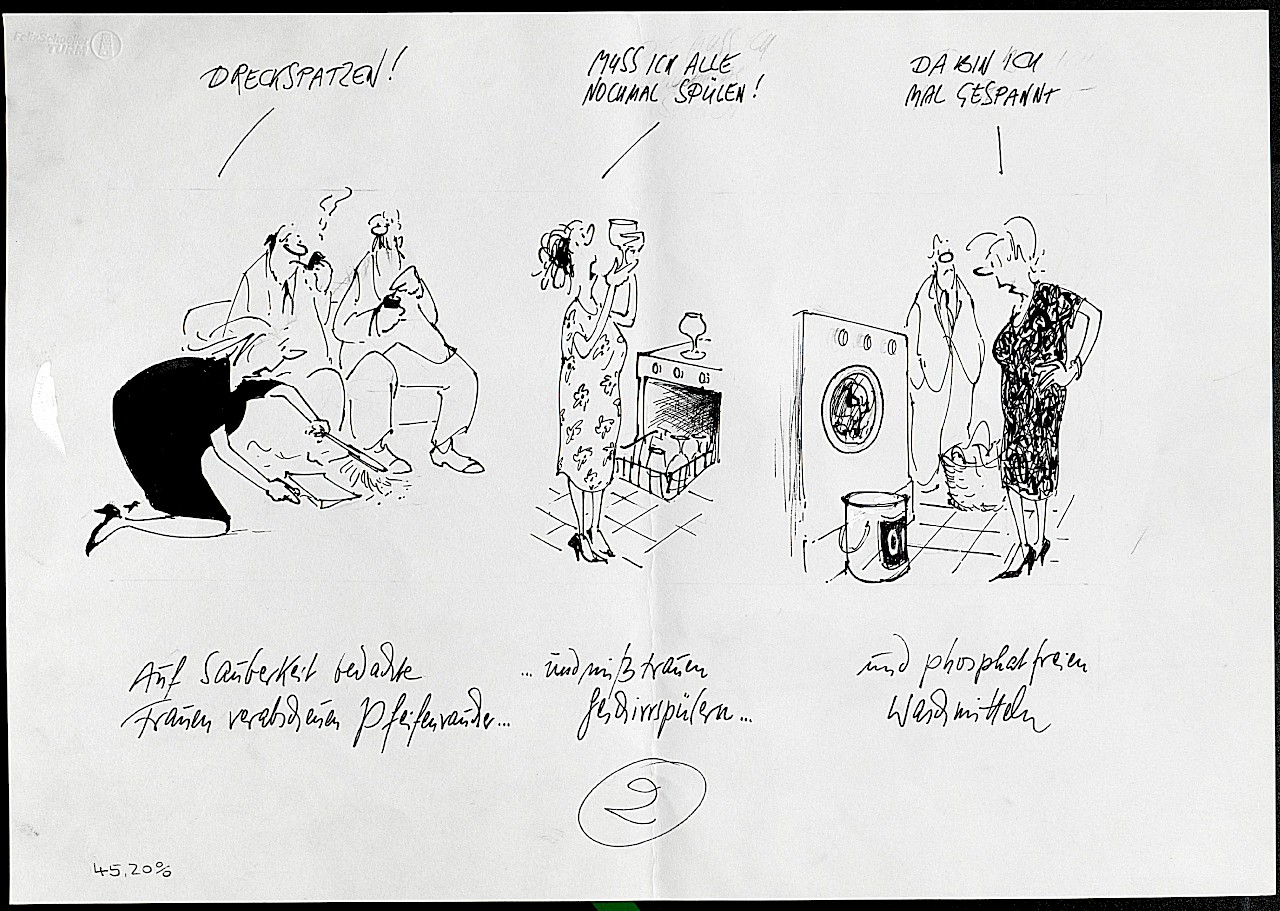 Felix Schoeller
TURM
DRECKSPATZEN!
MUSS ICH ALLE
NOCHMAL SPÜLEN!
DA BIN ICH
MAL GESPANNT –
Auf Sauberkeit bedachte
Frauen verabscheuen Pfeifenraucher...
... und mißtrauen
Geschirrspülern...
und phosphatfreien
Waschmitteln
2
45,20%